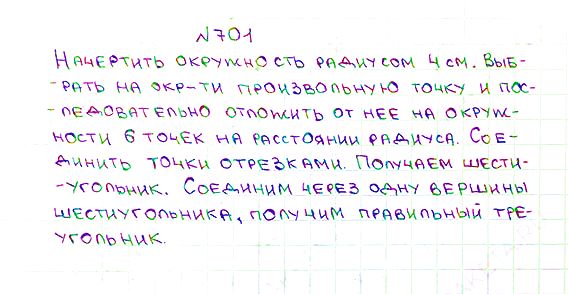 №701
Начертить окружность радиусом 4 см. Выб-
-рать на окр-ти произвольную точку и пос-
-ледовательно отложить от нее на окруж-
ности 6 точек на расстоянии радиуса. Сое-
динить точки отрезками. Получаем шести-
-угольник. Соединим через одну вершины
шестиугольника, получим правильный тре-
угольник.